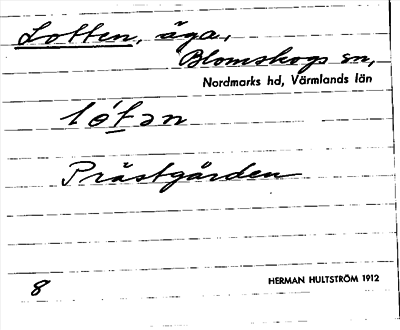 Lotten, äga,
Blomskogs sn,
Nordmarks hd, Värmlands län
lót̲ən
Prästgården
8
HERMAN HULTSTRÖM 1912